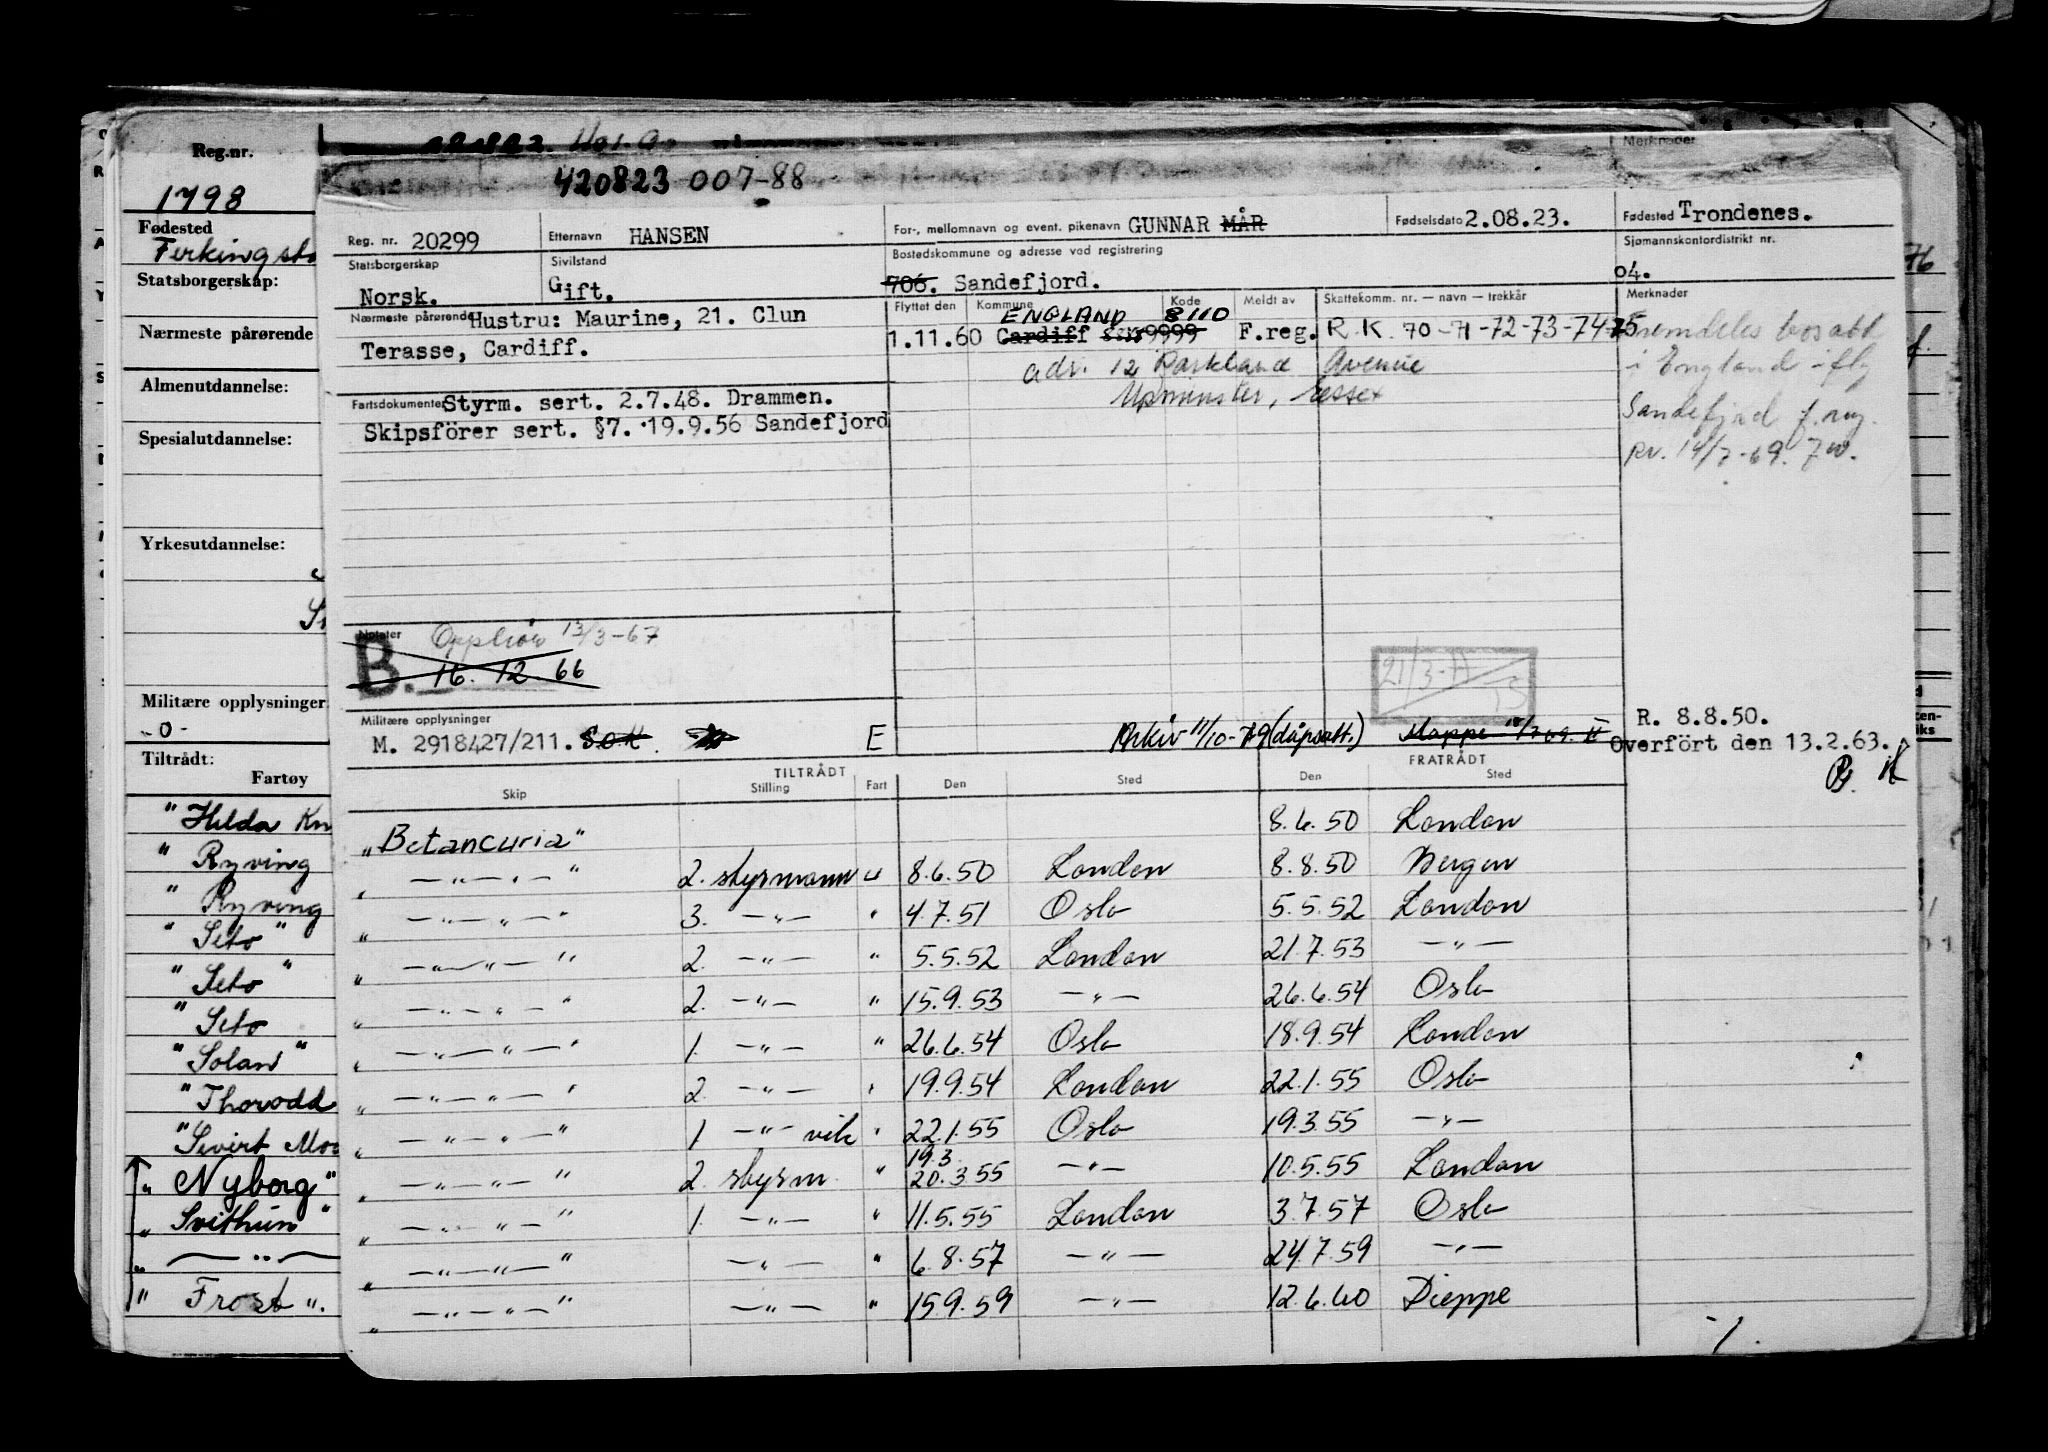 Reg.nr.
1798
Fødested
Ferkingsta
Statsborgerskap:
Nærmeste pårørende
Almenutdannelse:
Spesialutdannelse:
Yrkesutdannelse:
Militære opplysninger
-0-
Tiltrådt:
Fartøy
"Hilda Kn
"Ryving
"Ryving
"Seto"
"Seto"
"Seto
"Solan"
"Thorodd
"Sivert Mo
"Nyborg"
"Svithun"
" — " —
"Frost".
Merknader
420823 007-88
Reg. nr. 20299 Etternavn HANSEN For-, mellomnavn og event. pikenavn GUNNAR MÅR Fødselsdato 2.08.23. Fødested Trondenes.
Statsborgerskap Norsk. Sivilstand Gift. Bostedskommune og adresse ved registrering 706. Sandefjord. Sjømannskontordistrikt nr. 04.
Nærmeste pårørende Hustru: Maurine, 21. Clun
Terasse, Cardiff.
Flyttet den Kommune Kode Meldt av Skattekomm. nr. — navn — trekkår Merknader
ENGLAND 8110
1.11.60 Cardiff 9999 F.reg. R K 70-71-72-73-74-75
adr. 12 Parkland Avenue
Upminster, Essex
Fremdeles bosatt
i England ifly
Sandefjord f.reg.
rv. 14/7-69.
Fartsdokumenter Styrm. sert. 2.7.48. Drammen.
Skipsförer sert. §7. 19.9.56 Sandefjord
Notater Opphör 13/3-67
B. 16.12.66
21/3-77
Militære opplysninger
M. 2918427/211. E Arkiv 11/10-79 (dåpsatt.) Mappe
R. 8.8.50.
Overfört den 13.2.63.
TILTRÅDT FRATRÅDT
Skip Stilling Fart Den Sted Den Sted
"Betancuria" 8.6.50 London
" —"—"—" 2. styrmann u 8.6.50 London 8.8.50 Bergen
" —"—"—" 3. —"— " 4.7.51 Oslo 5.5.52 London
" —"—"—" 2. —"— " 5.5.52 London 21.7.53 —"—
" —"—"—" 2. —"— " 15.9.53 —"— 26.6.54 Oslo
" —"—"—" 1. —"— " 26.6.54 Oslo 18.9.54 London
" —"—"—" 2. —"— " 19.9.54 London 22.1.55 Oslo
" —"—"—" 1. —"— vik " 22.1.55 Oslo 19.3.55 —"—
19.3
" —"—"—" 2. styrm. " 20.3.55 —"— 10.5.55 London
" —"—"—" 1. —"— " 11.5.55 London 3.7.57 Oslo
" —"—"—" —"— " 6.8.57 —"— 24.7.59 —"—
" —"—"—" —"— " 15.9.59 —"— 12.6.60 Dieppe